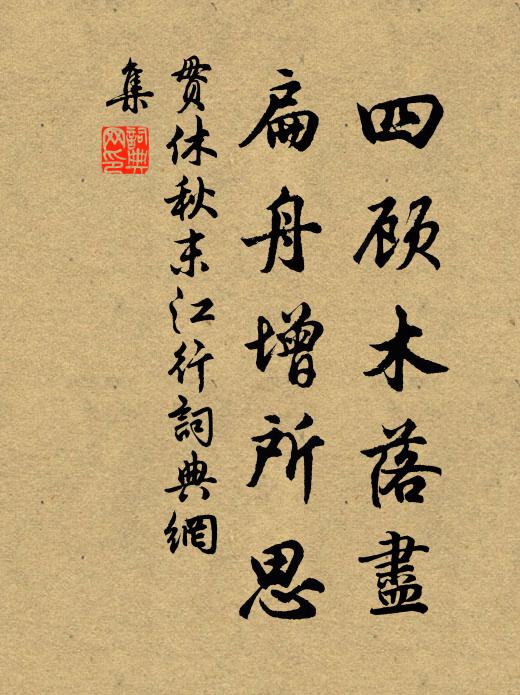 四顾木落盡
扁舟增所思
贯休秋末江行詞典網
集
詞典网印